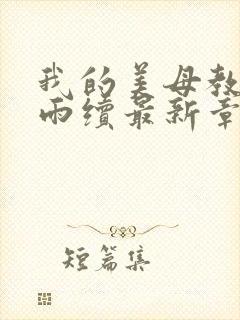 我的美母教
雨续最新章
短篇集